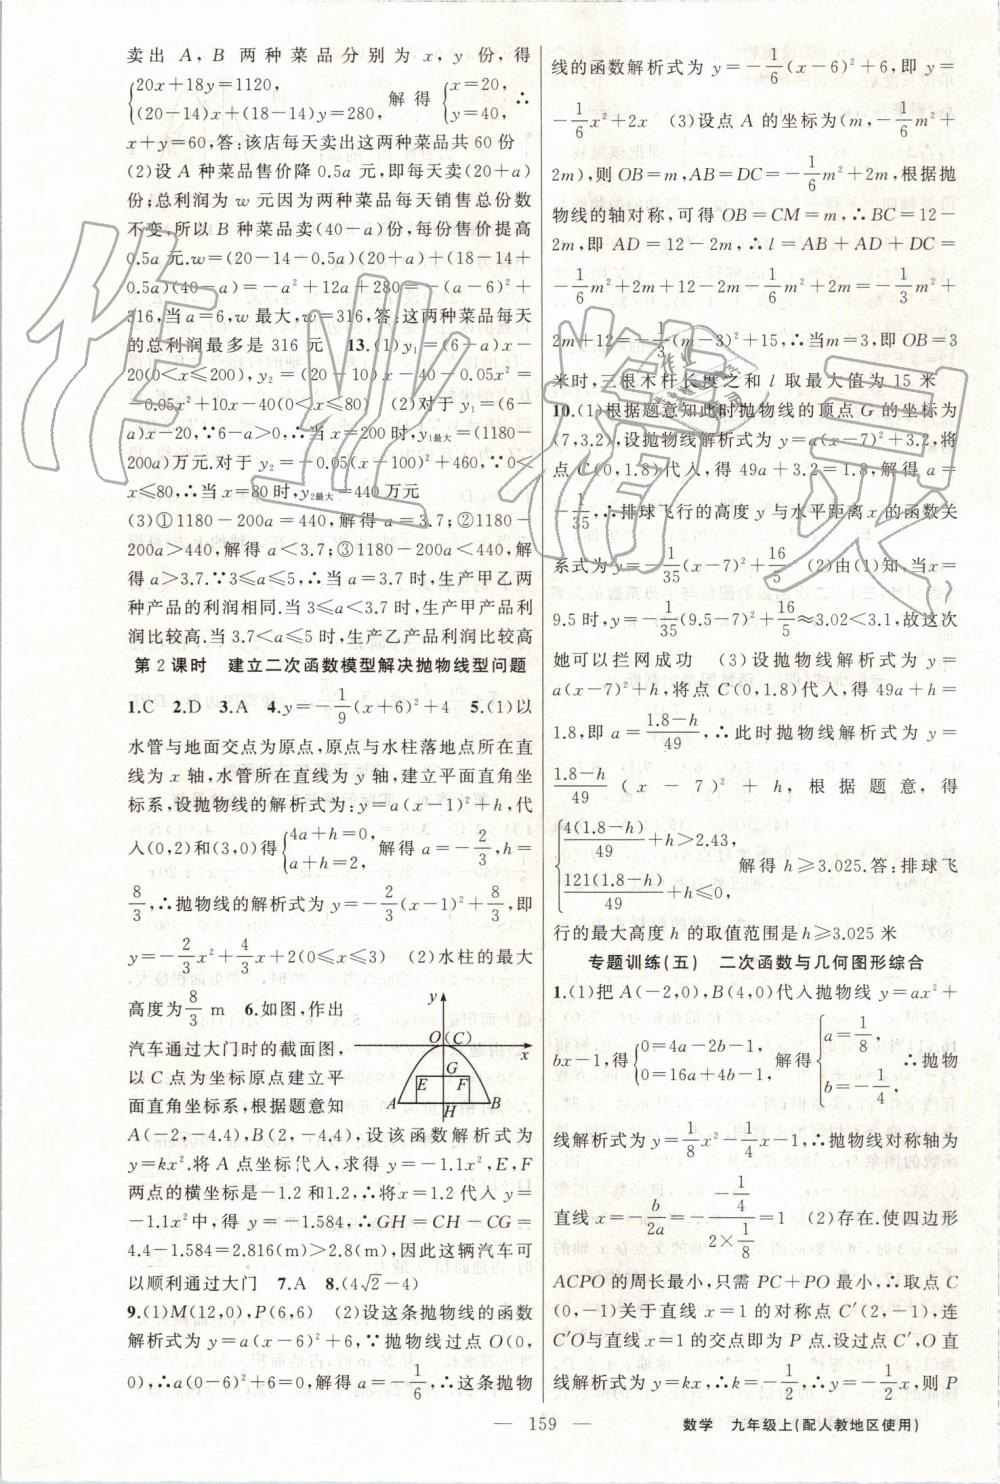 卖出 A,B 两种菜品分别为 x,y 份,得
{20x+18y=1120, (20-14)x+(18-14)y=280, 解得 {x=20, y=40, ∴
x+y=60,答:该店每天卖出这两种菜品共 60 份
(2)设 A 种菜品售价降 0.5a 元,即每天卖(20+a)
份;总利润为 w 元因为两种菜品每天销售总份数
不变,所以 B 种菜品卖(40-a)份,每份售价提高
0.5a 元.w=(20-14-0.5a)(20+a)+(18-14+
0.5a)(40-a)=-a²+12a+280=-(a-6)²+
316,当 a=6,w 最大,w=316,答:这两种菜品每天
的总利润最多是 316 元 13.(1)y₁=(6-a)x-
20(0<x≤200),y₂=(20-10)x-40-0.05x²=
-0.05x²+10x-40(0<x≤80) (2)对于 y₁=(6-
a)x-20,∵6-a>0,∴当 x=200 时,y₁最大=(1180-
200a)万元.对于 y₂=-0.05(x-100)²+460,∵0<
x≤80,∴当 x=80 时,y₂最大=440 万元
(3)①1180-200a=440,解得 a=3.7;②1180-
200a>440,解得 a<3.7;③1180-200a<440,解
得 a>3.7.∵3≤a≤5,∴当 a=3.7 时,生产甲乙两
种产品的利润相同.当 3≤a<3.7 时,生产甲产品利
润比较高.当 3.7<a≤5 时,生产乙产品利润比较高
第 2 课时 建立二次函数模型解决抛物线型问题
1.C 2.D 3.A 4.y=-1/9(x+6)²+4 5.(1)以
水管与地面交点为原点,原点与水柱落地点所在直
线为 x 轴,水管所在直线为 y 轴,建立平面直角坐
标系,设抛物线的解析式为:y=a(x-1)²+h,代
入(0,2)和(3,0)得{4a+h=0, a+h=2, 解得 a=-2/3,h=
8/3,∴抛物线的解析式为 y=-2/3(x-1)²+8/3,即
y=-2/3x²+4/3x+2(0≤x≤3) (2)水柱的最大
高度为 8/3 m 6.如图,作出
汽车通过大门时的截面图,
以 C 点为坐标原点建立平
面直角坐标系,根据题意知
y
O (C)
x
G
E F
A H B
A(-2,-4.4),B(2,-4.4),设该函数解析式为
y=kx².将 A 点坐标代入,求得 y=-1.1x²,E,F
两点的横坐标是-1.2 和1.2,∴将x=1.2 代入 y=
-1.1x²中,得 y=-1.584,∴GH=CH-CG=
4.4-1.584=2.816(m)>2.8(m),因此这辆汽车可
以顺利通过大门 7.A 8.(4√2-4)
9.(1)M(12,0),P(6,6) (2)设这条抛物线的函数
解析式为 y=a(x-6)²+6,∵抛物线过点 O(0,
0),∴a(0-6)²+6=0,解得 a=-1/6,∴这条抛物
线的函数解析式为 y=-1/6(x-6)²+6,即 y=
-1/6x²+2x (3)设点 A 的坐标为(m,-1/6m²+
2m),则 OB=m,AB=DC=-1/6m²+2m,根据抛
物线的轴对称,可得 OB=CM=m,∴BC=12-
2m,即 AD=12-2m,∴l=AB+AD+DC=
-1/6m²+2m+12-2m-1/6m²+2m=-1/3m²+
2m+12=-1/3(m-3)²+15,∴当 m=3,即 OB=3
米时,三根木杆长度之和 l 取最大值为 15 米
10.(1)根据题意知此时抛物线的顶点 G 的坐标为
(7,3.2),设抛物线解析式为 y=a(x-7)²+3.2,将
点 C(0,1.8)代入,得 49a+3.2=1.8,解得 a=
-1/35,∴排球飞行的高度 y 与水平距离 x 的函数关
系式为 y=-1/35(x-7)²+16/5 (2)由(1)知,当x=
9.5 时,y=-1/35(9.5-7)²+16/5≈3.02<3.1,故这次
她可以拦网成功 (3)设抛物线解析式为 y=
a(x-7)²+h,将点 C(0,1.8)代入,得 49a+h=
1.8,即 a=(1.8-h)/49,∴此时抛物线解析式为 y=
(1.8-h)/49 (x-7)²+h,根据题意,得
{4(1.8-h)/49+h>2.43, 121(1.8-h)/49+h≤0, 解得 h≥3.025.答:排球飞
行的最大高度 h 的取值范围是 h≥3.025 米
专题训练(五) 二次函数与几何图形综合
1.(1)把 A(-2,0),B(4,0)代入抛物线 y=ax²+
bx-1,得{0=4a-2b-1, 0=16a+4b-1, 解得{a=1/8, b=-1/4, ∴抛物
线解析式为 y=1/8x²-1/4x-1,∴抛物线对称轴为
直线 x=-b/2a=-(-1/4)/(2×1/8)=1 (2)存在.使四边形
ACPO 的周长最小,只需 PC+PO 最小,∴取点 C
(0,-1)关于直线 x=1 的对称点 C′(2,-1),连
C′O与直线 x=1 的交点即为 P 点.设过点 C′,O 直
线解析式为 y=kx,∴k=-1/2,∴y=-1/2x,则 P
— 159 — 数学 九年级上(配人教地区使用)
作业精灵